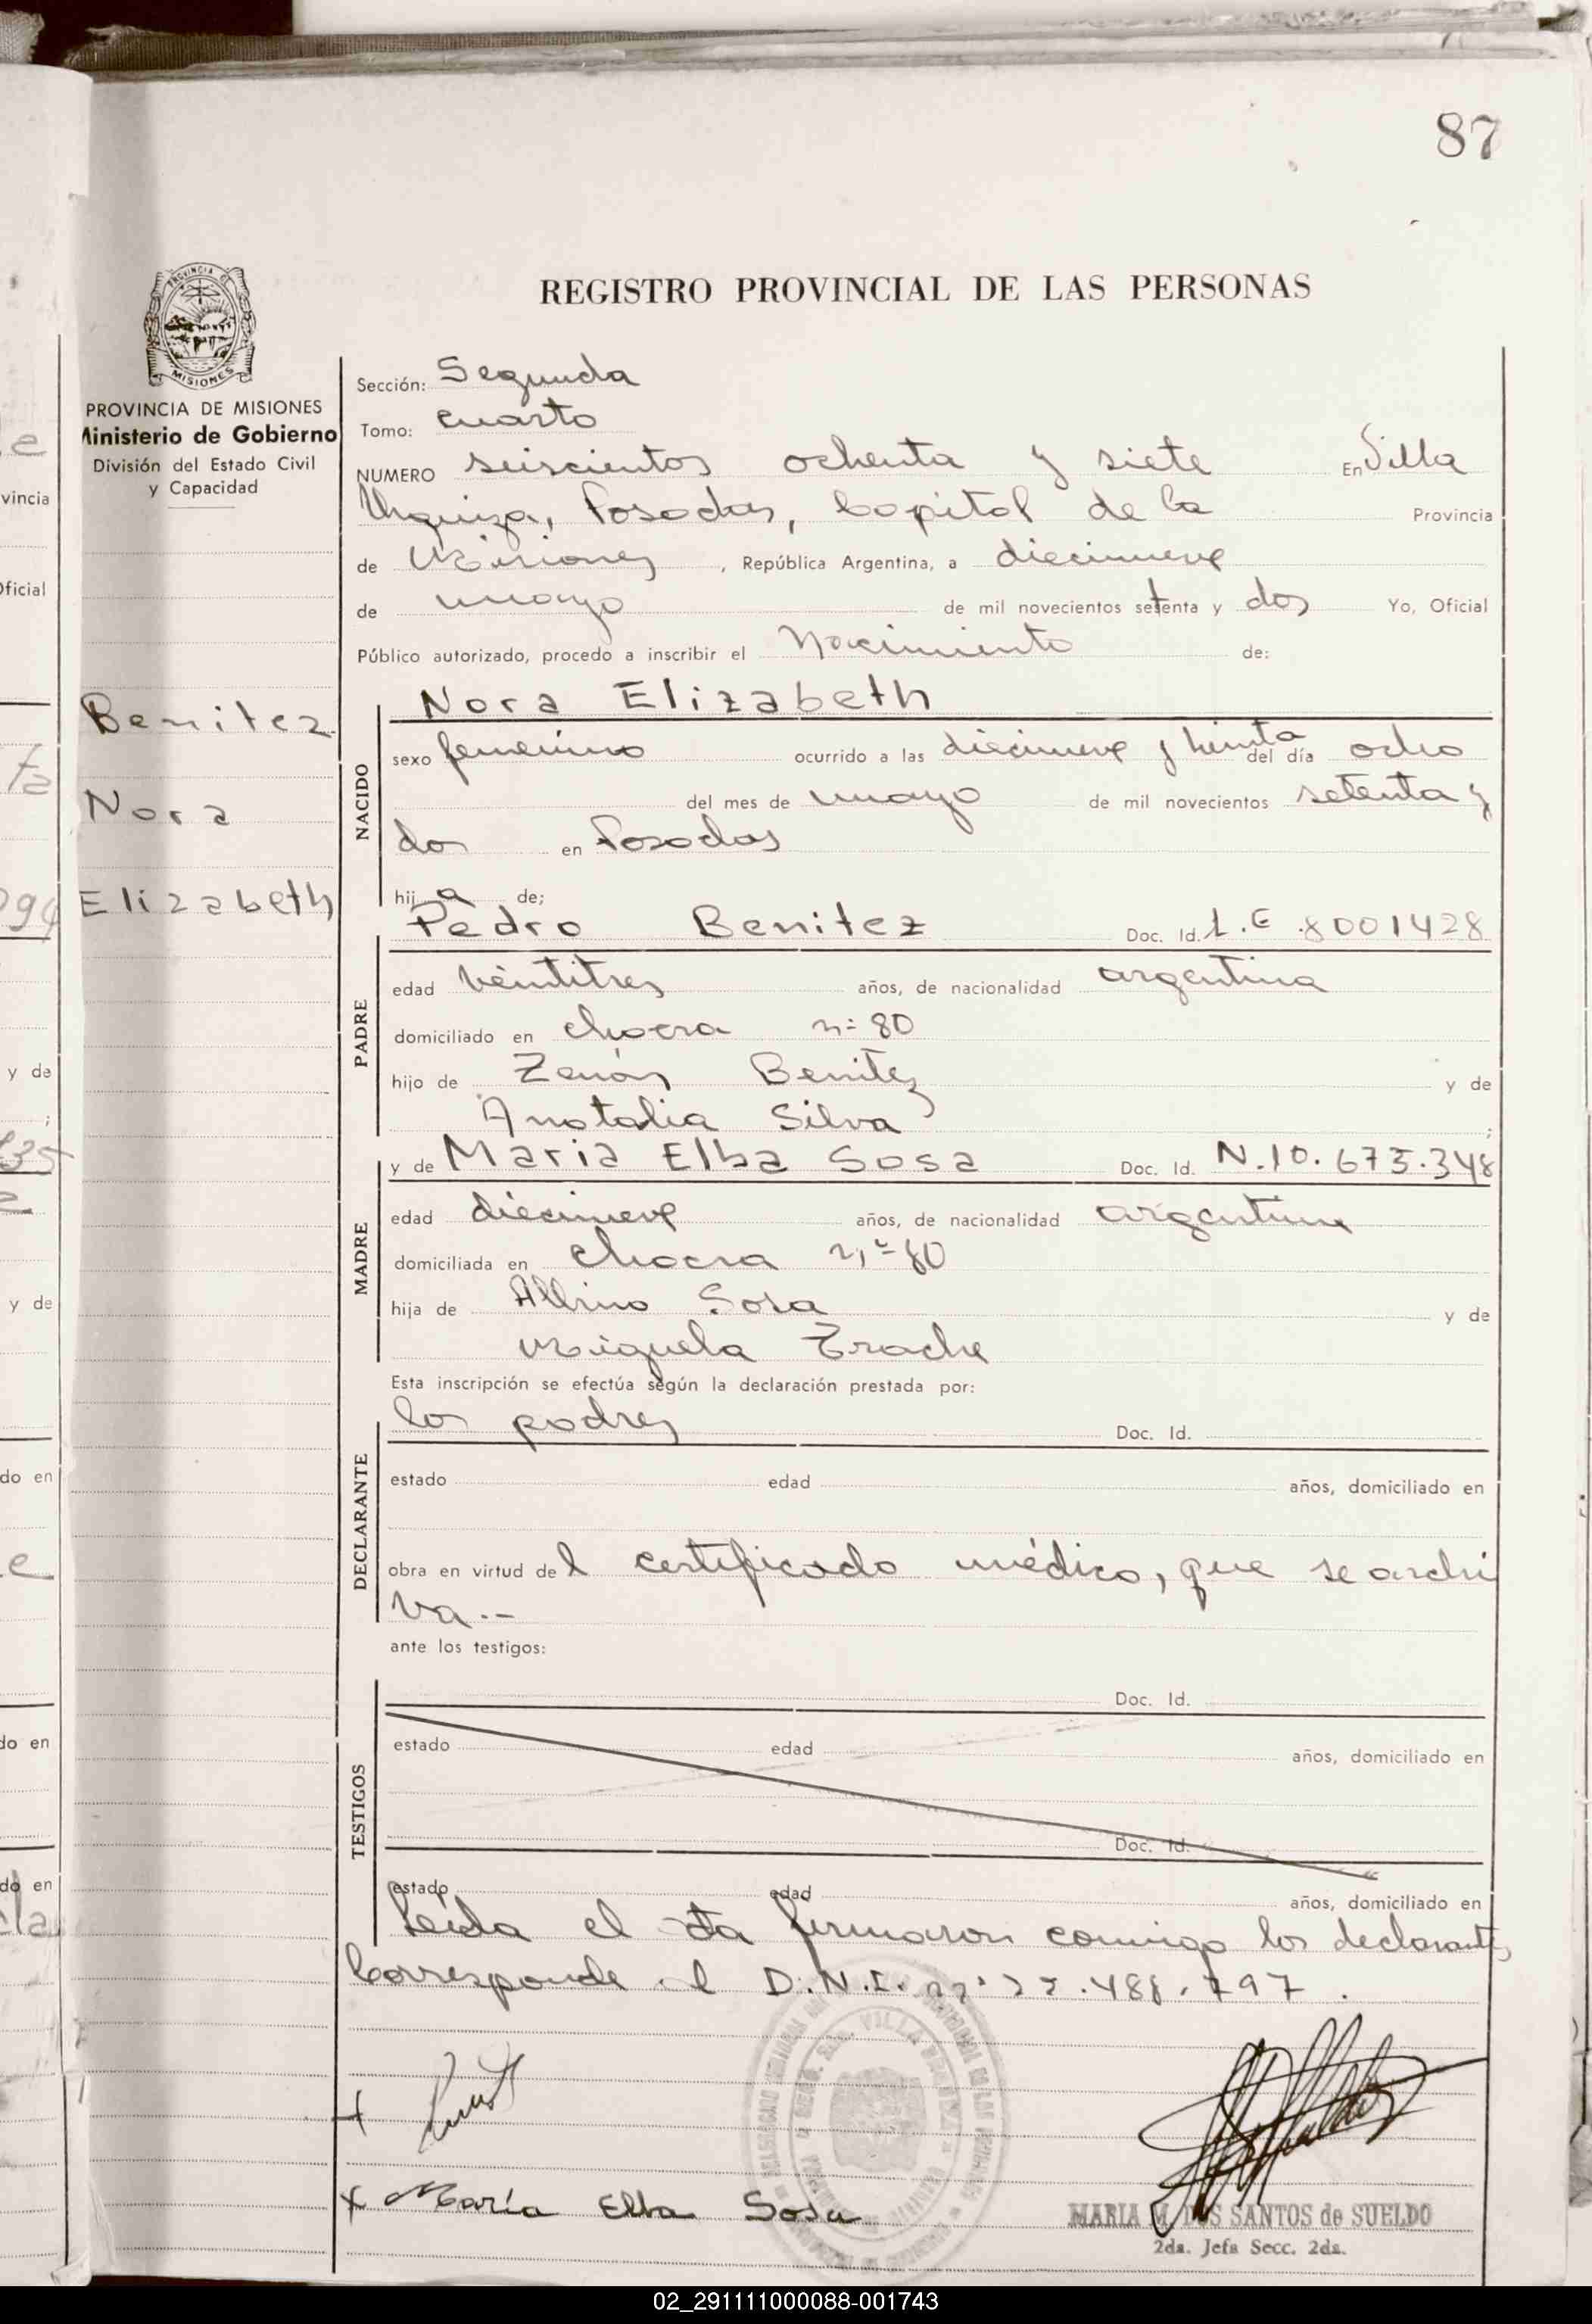 87
REGISTRO PROVINCIAL DE LAS PERSONAS
PROVINCIA DE MISIONES
Ministerio de Gobierno
División del Estado Civil
y Capacidad
Sección: Segunda
Tomo: cuarto
NUMERO seiscientos ochenta y siete En Villa
Urquiza, Posadas, Capital de la Provincia
de Misiones, República Argentina, a diecinueve
de mayo de mil novecientos setenta y dos Yo, Oficial
Público autorizado, procedo a inscribir el Nacimiento de:
Benitez
Nora
Elizabeth
NACIDO
Nora Elizabeth
sexo femenino ocurrido a las diecinueve y treinta del día ocho
del mes de mayo de mil novecientos setenta y
dos en Posadas
hija de;
PADRE
Pedro Benitez Doc. Id. L.E 8001428
edad veintitres años, de nacionalidad argentina
domiciliado en chacra nº 80
hijo de Zenón Benitez y de
Anatalia Silva ;
MADRE
y de Maria Elba Sosa Doc. Id. N.10.675.348
edad diecinueve años, de nacionalidad argentina
domiciliada en chacra nº 80
hija de Albino Sosa y de
Miguela Trache
Esta inscripción se efectúa según la declaración prestada por:
DECLARANTE
los padres Doc. Id.
estado edad años, domiciliado en
obra en virtud del certificado médico, que se archi
va.--
ante los testigos:
TESTIGOS
Doc. Id.
estado edad años, domiciliado en
Doc. Id.
estado edad años, domiciliado en
Leída el acta firmaron conmigo los declarantes
Corresponde el D.N.I. nº 22.488.797.
+
+ María Elba Sosa
MARIA M. DOS SANTOS de SUELDO
2da. Jefa Secc. 2da.
02_291111000088-001743